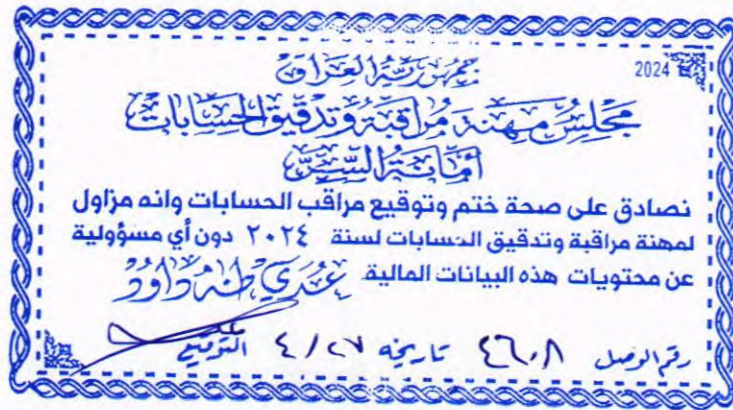 2024
جمهورية العراق
مجلس مهنة مراقبة وتدقيق الحسابات
أمانة السر
نصادق على صحة ختم وتوقيع مراقب الحسابات وانه مزاول
لمهنة مراقبة وتدقيق الحسابات لسنة ٢٠٢٤ دون أي مسؤولية
عن محتويات هذه البيانات المالية
عدي طه داود
رقم الوصل ٤٦٠٨ تاريخه ٤/٢٧ التوقيع